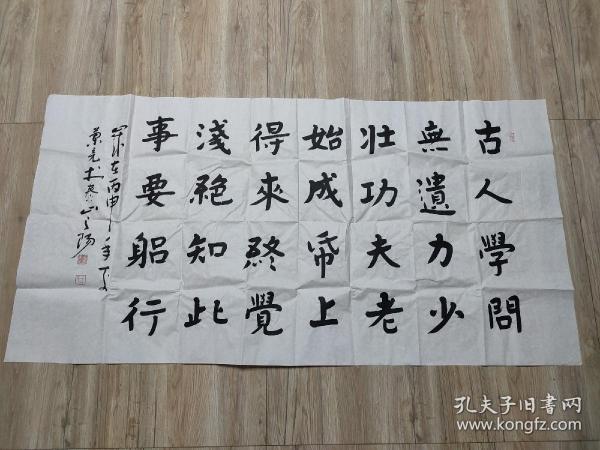 古人學問
無遺力少
壯功夫老
始成帋上
得來終覺
淺絕知此
事要躳行
歲在丙申年夏
於泰山之陽
孔夫子旧书网
www.kongfz.com